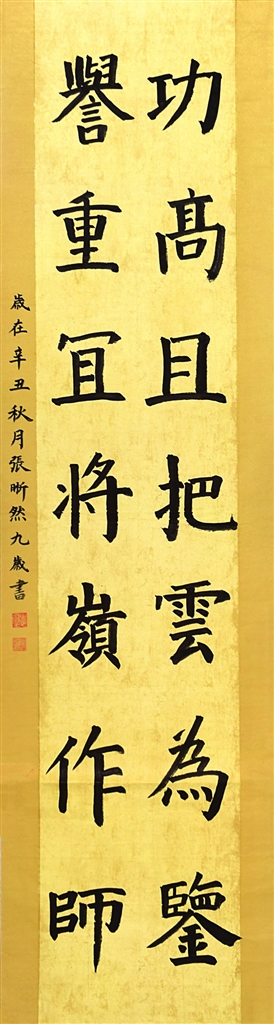 功高且把雲為鑒
譽重冝將嶺作師
歲在辛丑秋月張晰然九歲書